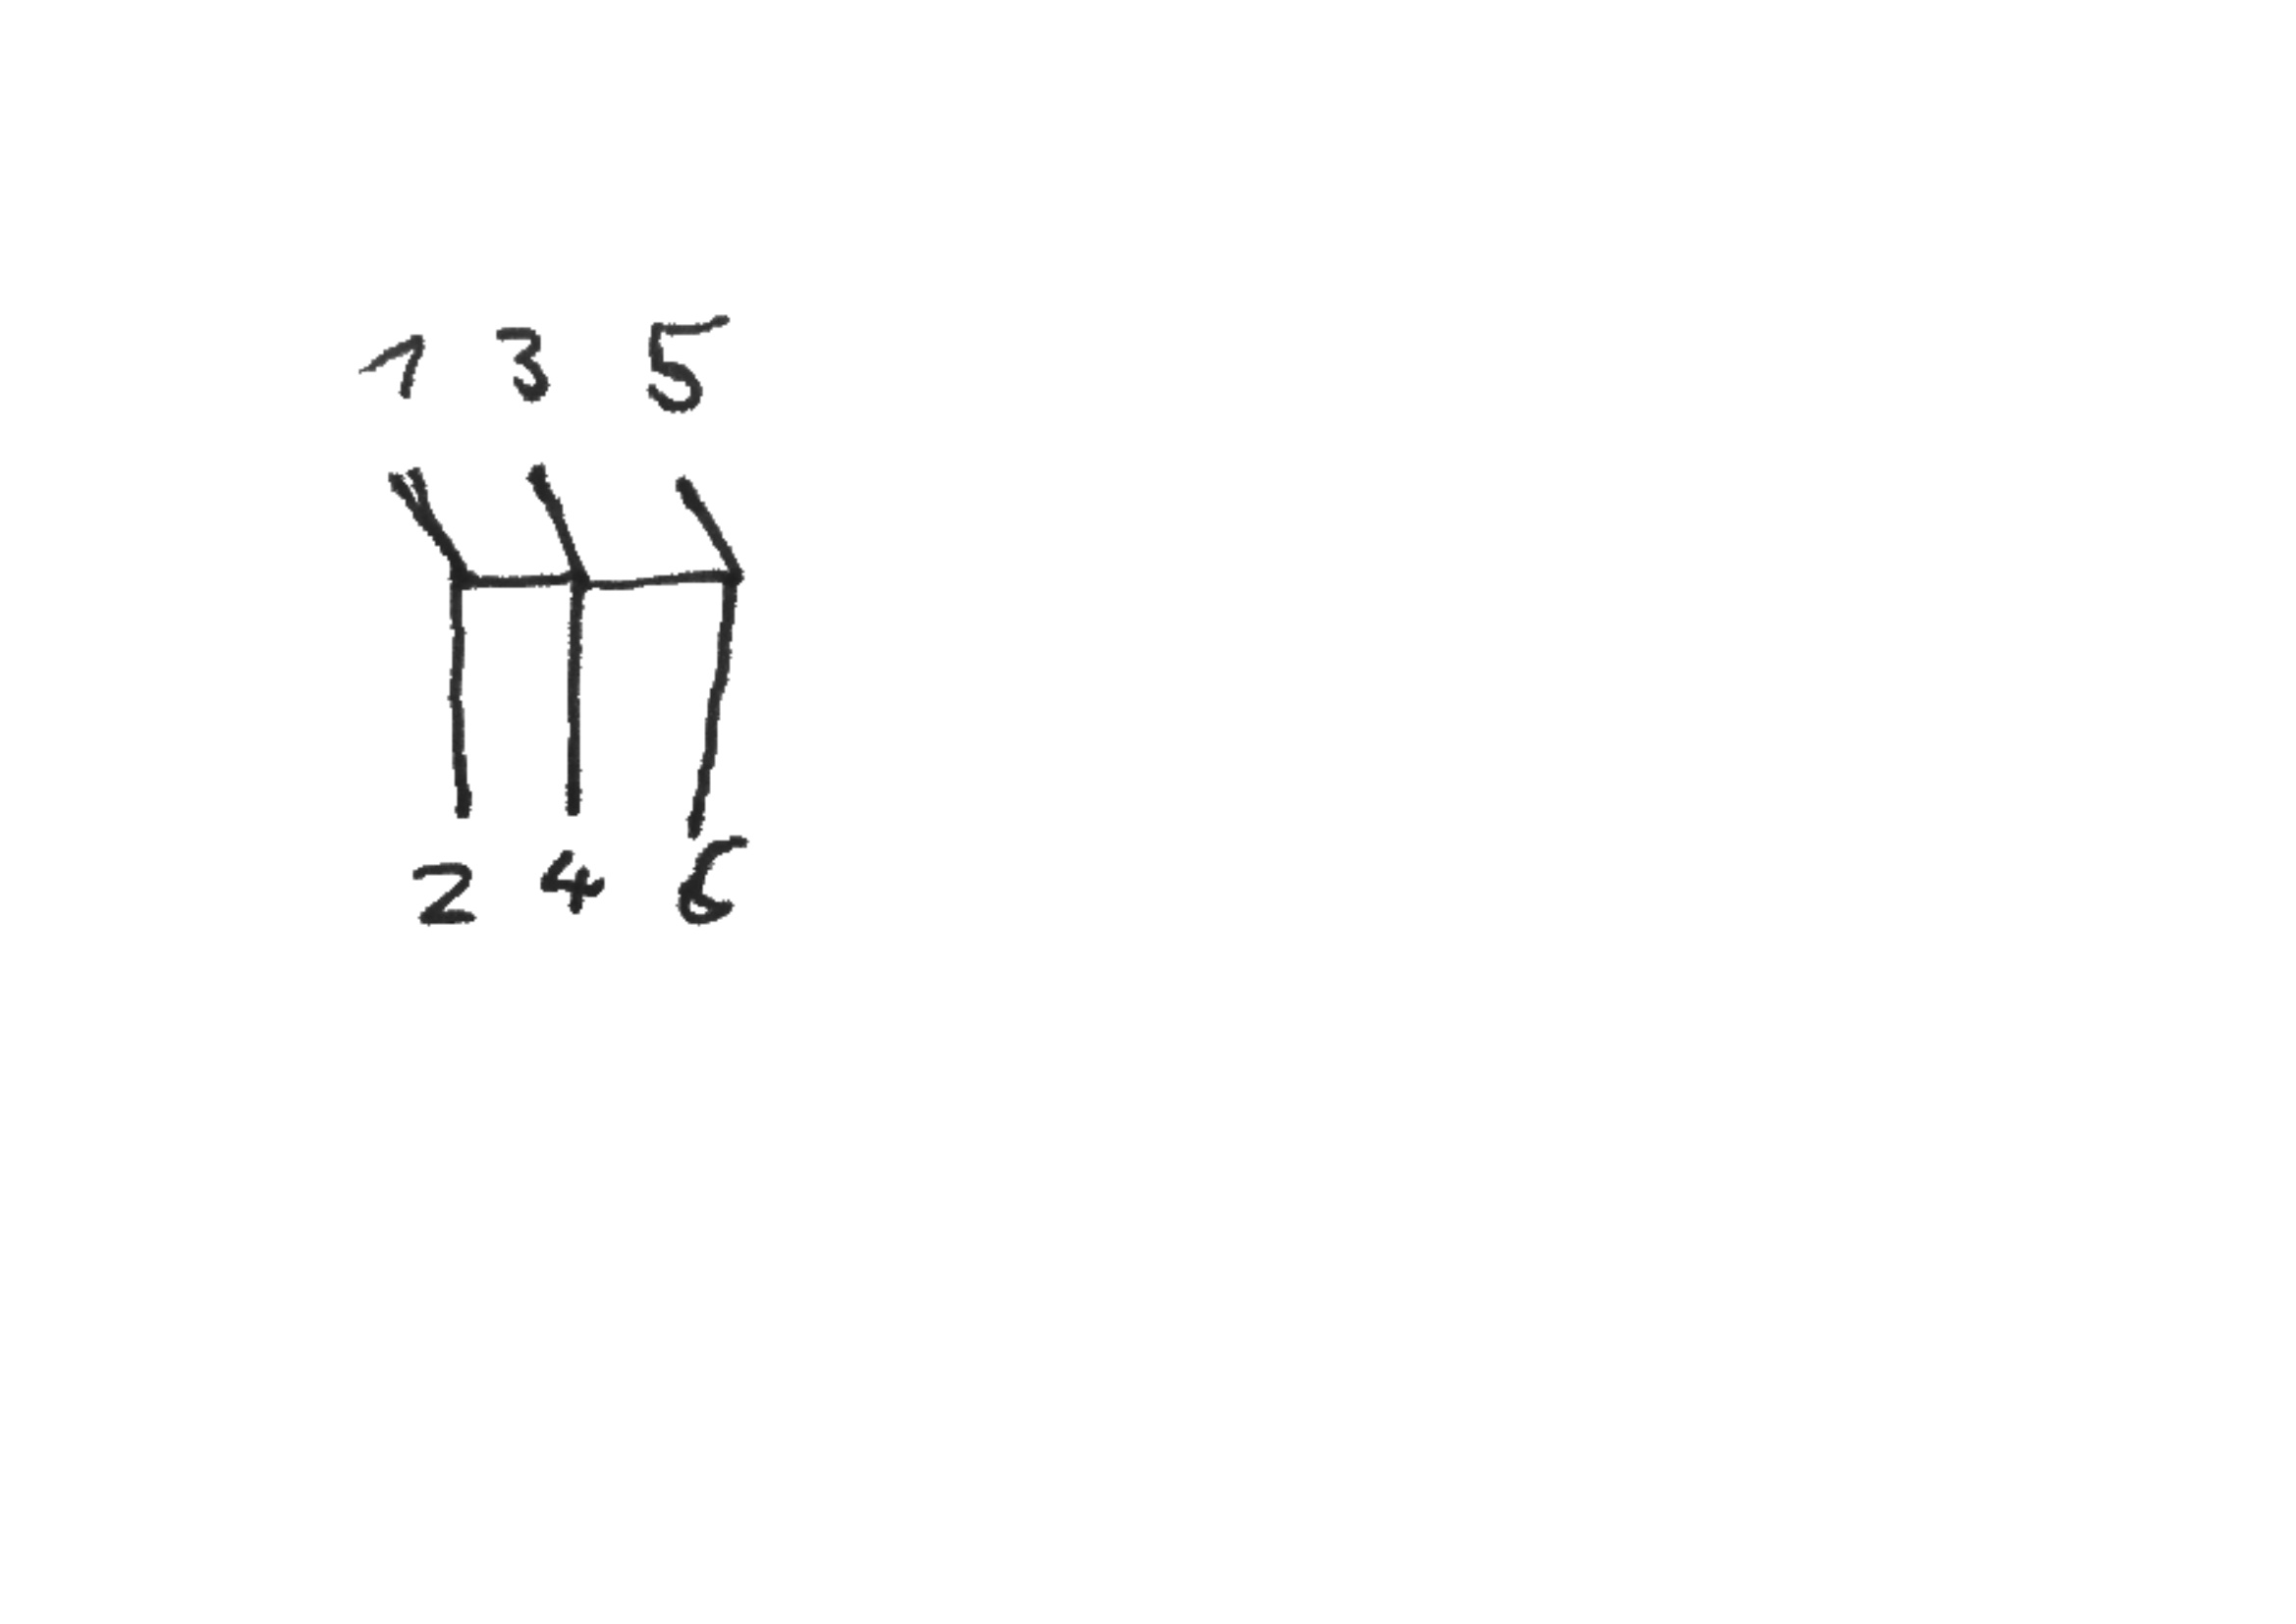 1 3 5
2 4 6